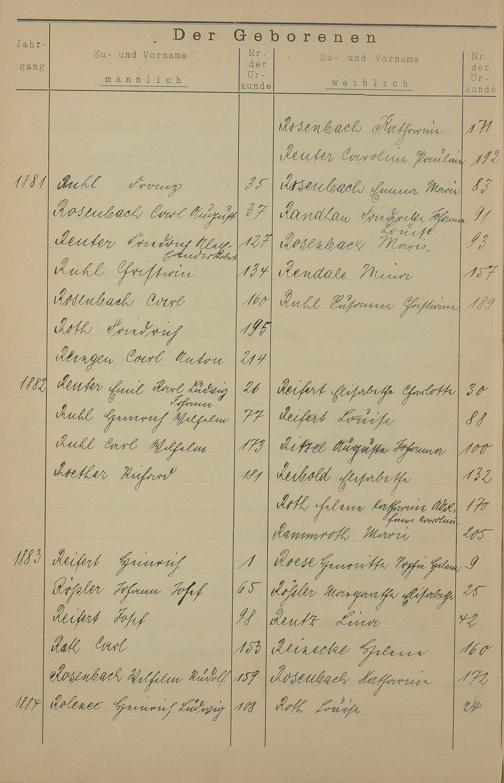 Der Geborenen
Jahr-
gang
Zu- und Vorname
männlich
Nr.
der
Ur-
kunde
Zu- und Vorname
weiblich
Nr.
der
Ur-
kunde
Rosenbach Katharine 171
Reuter Caroline Pauline 192
1881 Ruhl Franz 35 Rosenbach Emma Marie 83
Rosenbach Carl August 37 Randhan Friedrike Johanna 91
Louise
Reuter Friedrich 127 Rosenbach Marie 93
Ruhl Christian 134 Rendale Mina 157
Rosenbach Carl 160 Ruhl Susanna Christiane 189
Roth Friedrich 195
Ringen Carl Anton 214
1882 Reuter Emil Karl Ludwig 26 Reifert Elisabethe Charlotte 30
Johann
Ruhl Heinrich Wilhelm 77 Reifert Louise 88
Ruhl Carl Wilhelm 173 Ritzel Auguste Johanna 100
Roether Richard 181 Reibold Elisabethe 132
Roth Helene Katharine 170
Caroline
Rammroth Marie 205
1883 Reifert Heinrich 1 Roese Henriette Sophie Helene 9
Rößler Johann Josef 65 Rößler Margarethe Elisabethe 25
Reifert Josef 98 Rentz Lina 42
Rath Carl 153 Reinecke Helene 160
Rosenbach Wilhelm Rudolf 159 Rosenbach Katharine 172
1884 Heinrich Ludwig 108 Roth Louise 24